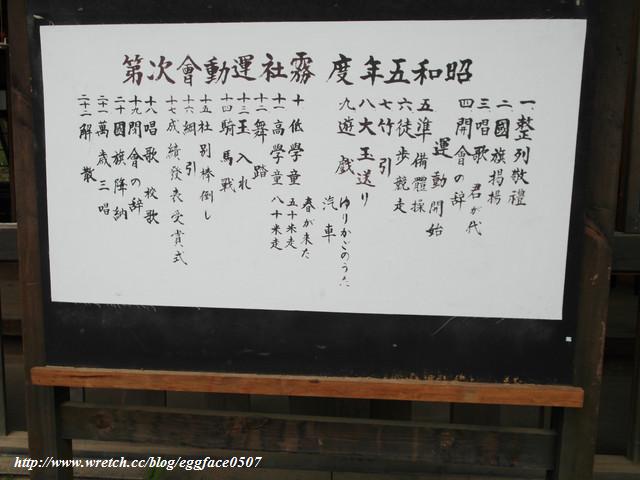 昭和五年度 霧社運動會次第
一、整列敬禮
二、國旗掲揚
三唱歌 君が代
四開會の辞
運動開始
五準備體操
六徒步競走
七竹引
八大玉送り
九遊戲 ゆりかごのうた
汽車
春が来た
十低學童 五十米走
十一高學童 八十米走
十二舞踏
十三玉入れ
十四騎馬戰
十五社別棒倒し
十六綱引
十七成績發表受賞式
十八唱歌 校歌
十九閉會の辞
二十國旗降納
二十一萬歲三唱
二十二解散
http://www.wretch.cc/blog/eggface0507